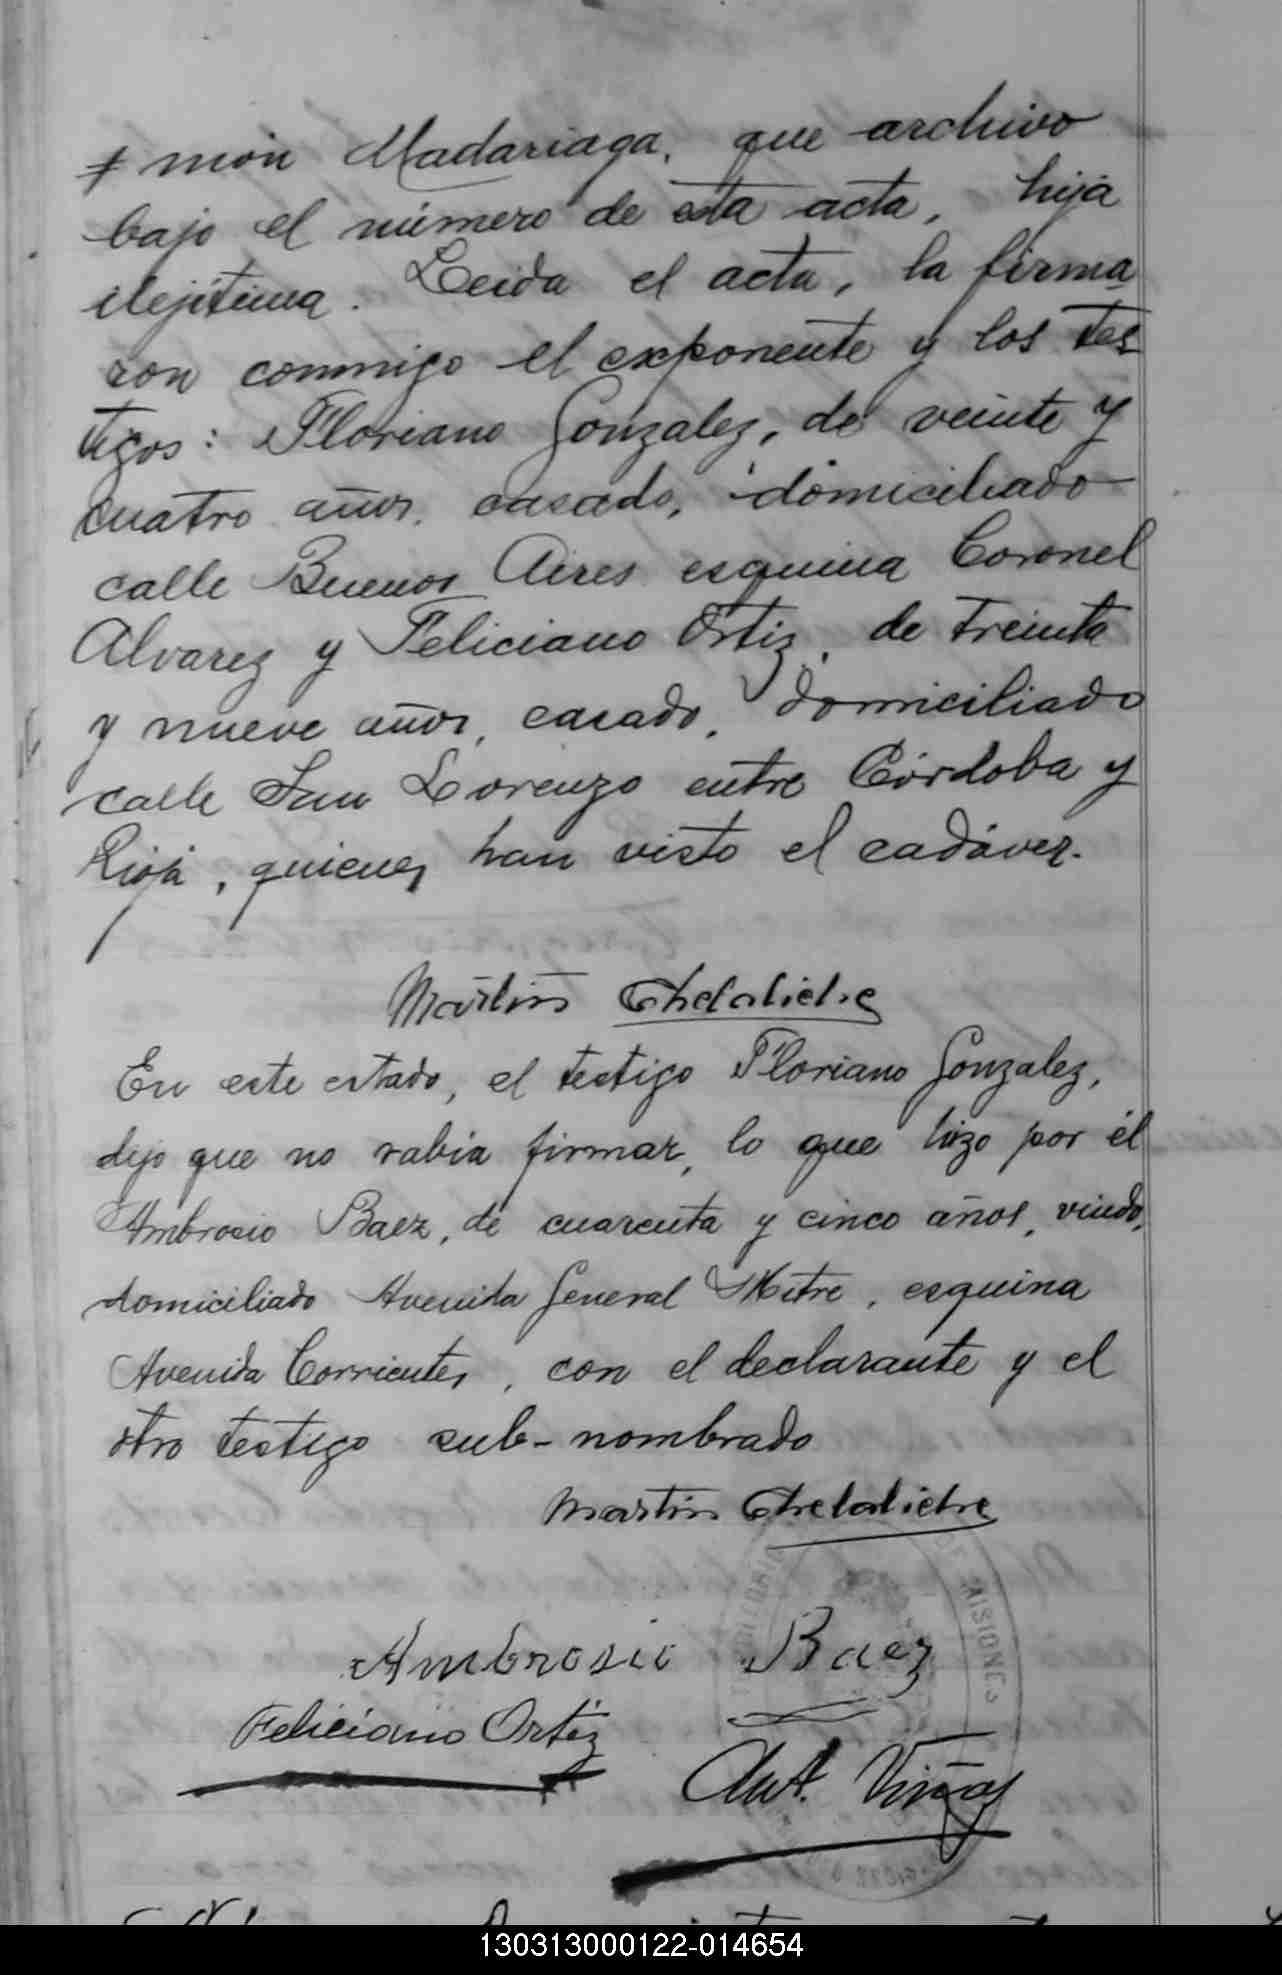 ‡ món Madariaga, que archivo
bajo el número de esta acta, hija
ilejítima. Leida el acta, la firma
ron conmigo el exponente y los tes
tigos: Floriano Gonzalez, de veinte y
cuatro años, casado, domiciliado
calle Buenos Aires esquina Coronel
Alvarez y Feliciano Ortiz, de treinta
y nueve años, casado, domiciliado
calle San Lorenzo entre Córdoba y
Rioja, quienes han visto el cadáver.
Martin
En este estado, el testigo Floriano Gonzalez,
dijo que no sabia firmar, lo que hizo por él
Ambrosio Baez, de cuarenta y cinco años, viudo,
domiciliado Avenida General Mitre, esquina
Avenida Corrientes, con el declarante y el
otro testigo sub-nombrado
Martin
DE MISIONES
Ambrosio Baez
Feliciano Ortiz
Ant. Viñas
130313000122-014654